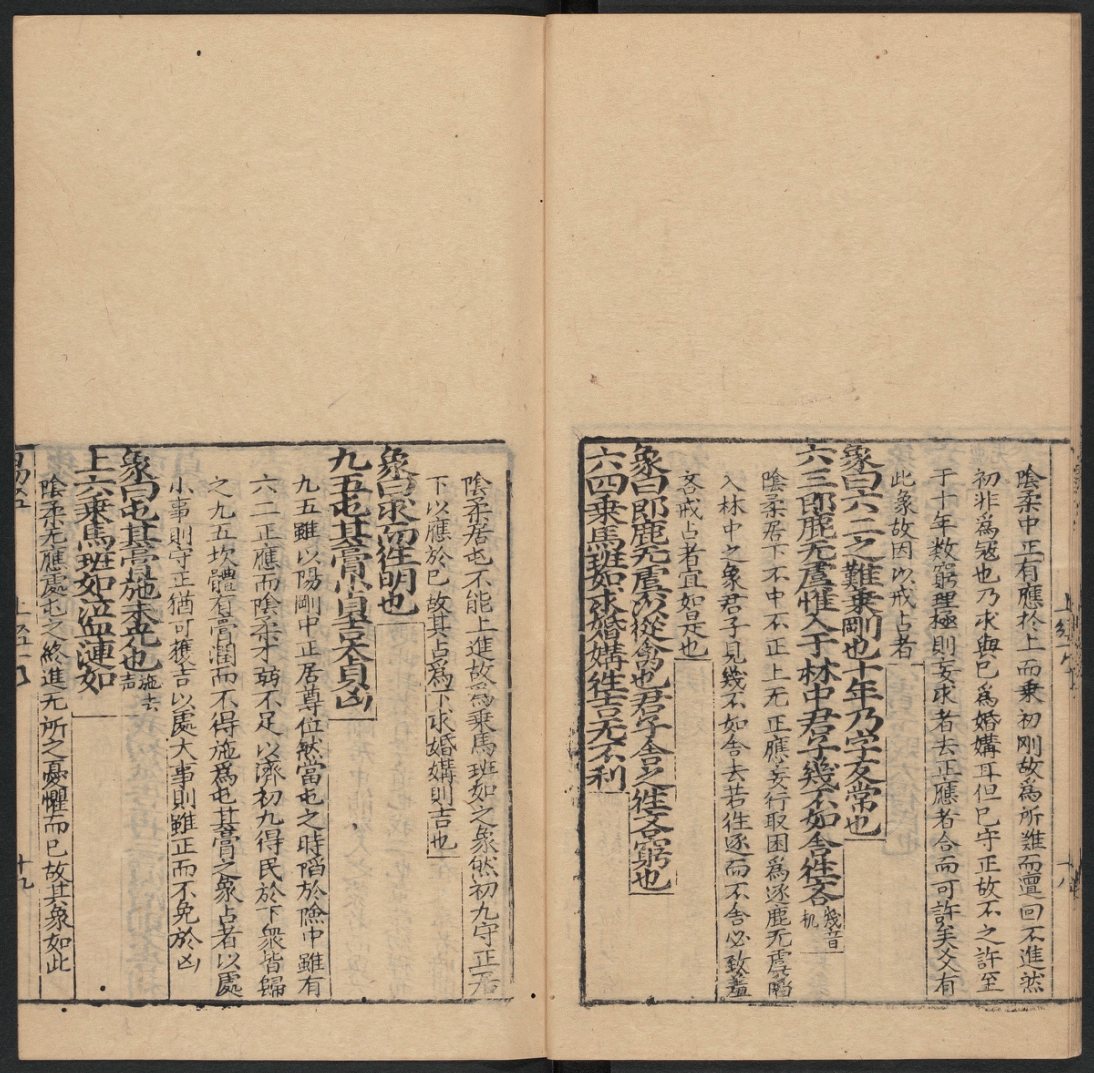 陰柔中正有應於上而乗初剛故為所難而邅回不進然
初非為冦也乃求與巳為婚媾耳但巳守正故不之許至
于十年数窮理極則妄求者去正應者合而可許矣爻有
此象故因以戒占者
象曰六二之難乗剛也十年乃字反常也
六三即鹿无虞惟入于林中君子幾不如舍徃吝 幾音机
陰柔居下不中不正上无正應妄行取困為逐鹿无虞陷
入林中之象君子見幾不如舎去若徃逐而不舎必致羞
吝戒占者宜如是也
象曰即鹿无虞以從禽也君子舍之徃吝窮也
六四乗馬班如求婚媾徃吉无不利
陰柔居屯不能上進故為乗馬班如之象然初九守正居
下以應於已故其占爲下求婚媾則吉也
象曰求而徃明也
九五屯其膏小貞吉大貞凶
九五雖以陽剛中正居尊位然當屯之時陷於險中雖有
六二正應而陰柔才弱不足以濟初九得民於下衆皆歸
之九五坎體有膏潤而不得施爲屯其膏之象占者以處
小事則守正猶可獲吉以處大事則雖正而不免於凶
象曰屯其膏施未光也 施去声
上六乗馬班如泣血漣如
陰柔无應處屯之終進无所之憂懼而已故其象如此
十九